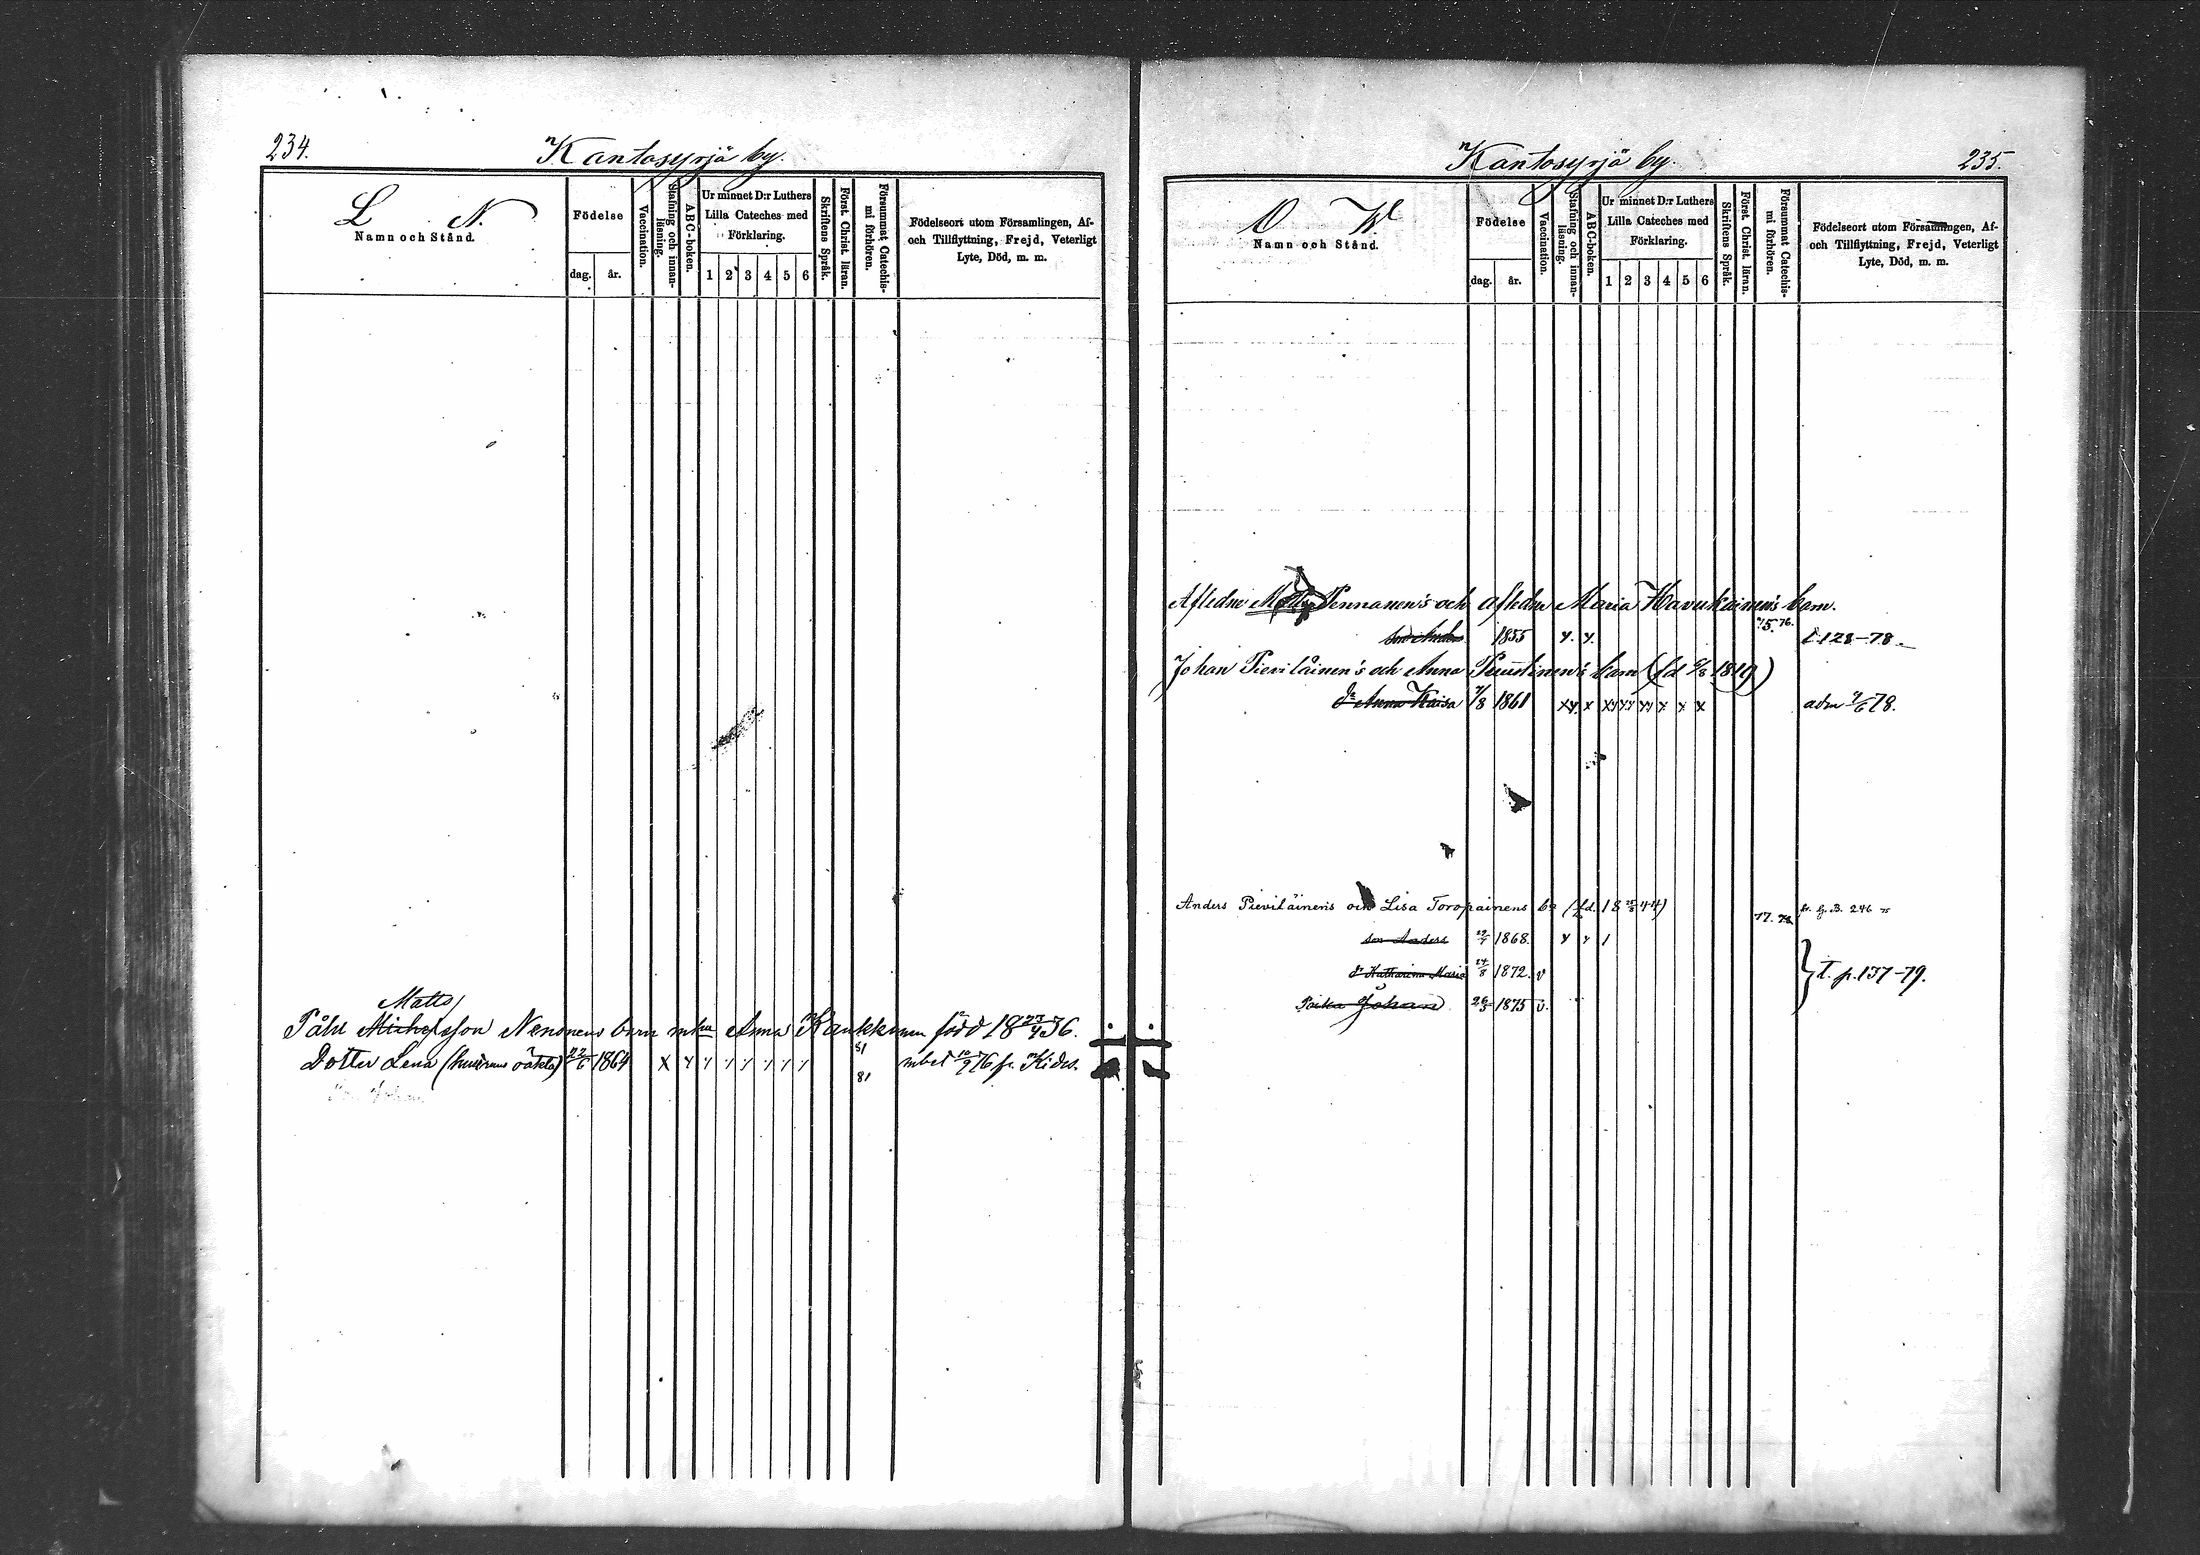 234.
Kantosyrjä by.
L N.
Namn och Stånd.
Födelse
dag. år.
Vaccination.
Stafning och innanläsning.
ABC-boken.
Ur minnet D:r Luthers Lilla Cateches med Förklaring.
1 2 3 4 5 6
Skriftens Språk.
Först. Christ. läran.
Försummat Catechismi förhören.
Födelseort utom Församlingen, Af- och Tillflyttning, Frejd, Veterligt Lyte, Död, m. m.
Matts
Påhl Michelsson Nenonens barn Anna född 18 23/4 36.
81
Dotter Lena 22/6 1864 x y y y y y y y 10/9 76 fr. Kides.
81
Kantosyrjä by.
235.
O W.
Namn och Stånd.
Födelse
dag. år.
Vaccination.
Stafning och innanläsning.
ABC-boken.
Ur minnet D:r Luthers Lilla Cateches med Förklaring.
1 2 3 4 5 6
Skriftens Språk.
Först. Christ. läran.
Försummat Catechismi förhören.
Födelseort utom Församlingen, Af- och Tillflyttning, Frejd, Veterligt Lyte, Död, m. m.
Afledne Pennanen's och afledn Maria Havukainen's barn.
75. 76.
son Anders 1855 y. y. t 128-78
Johan Pieviläinen's och Anna Puustinen's barn 1819)
dr Anna Kaisa 7/8 1861 xy. x xy yy yy x x x adm 9/6 78.
Anders Pieviläinens och Lisa Toropainens bn (fd. 18 44)
77. 78 B. 246
son Anders 1868. y y 1
dr Katharina Maria 24/8 1872. v } t. p. 137-79.
Poika Johan 26/5 1875 v.